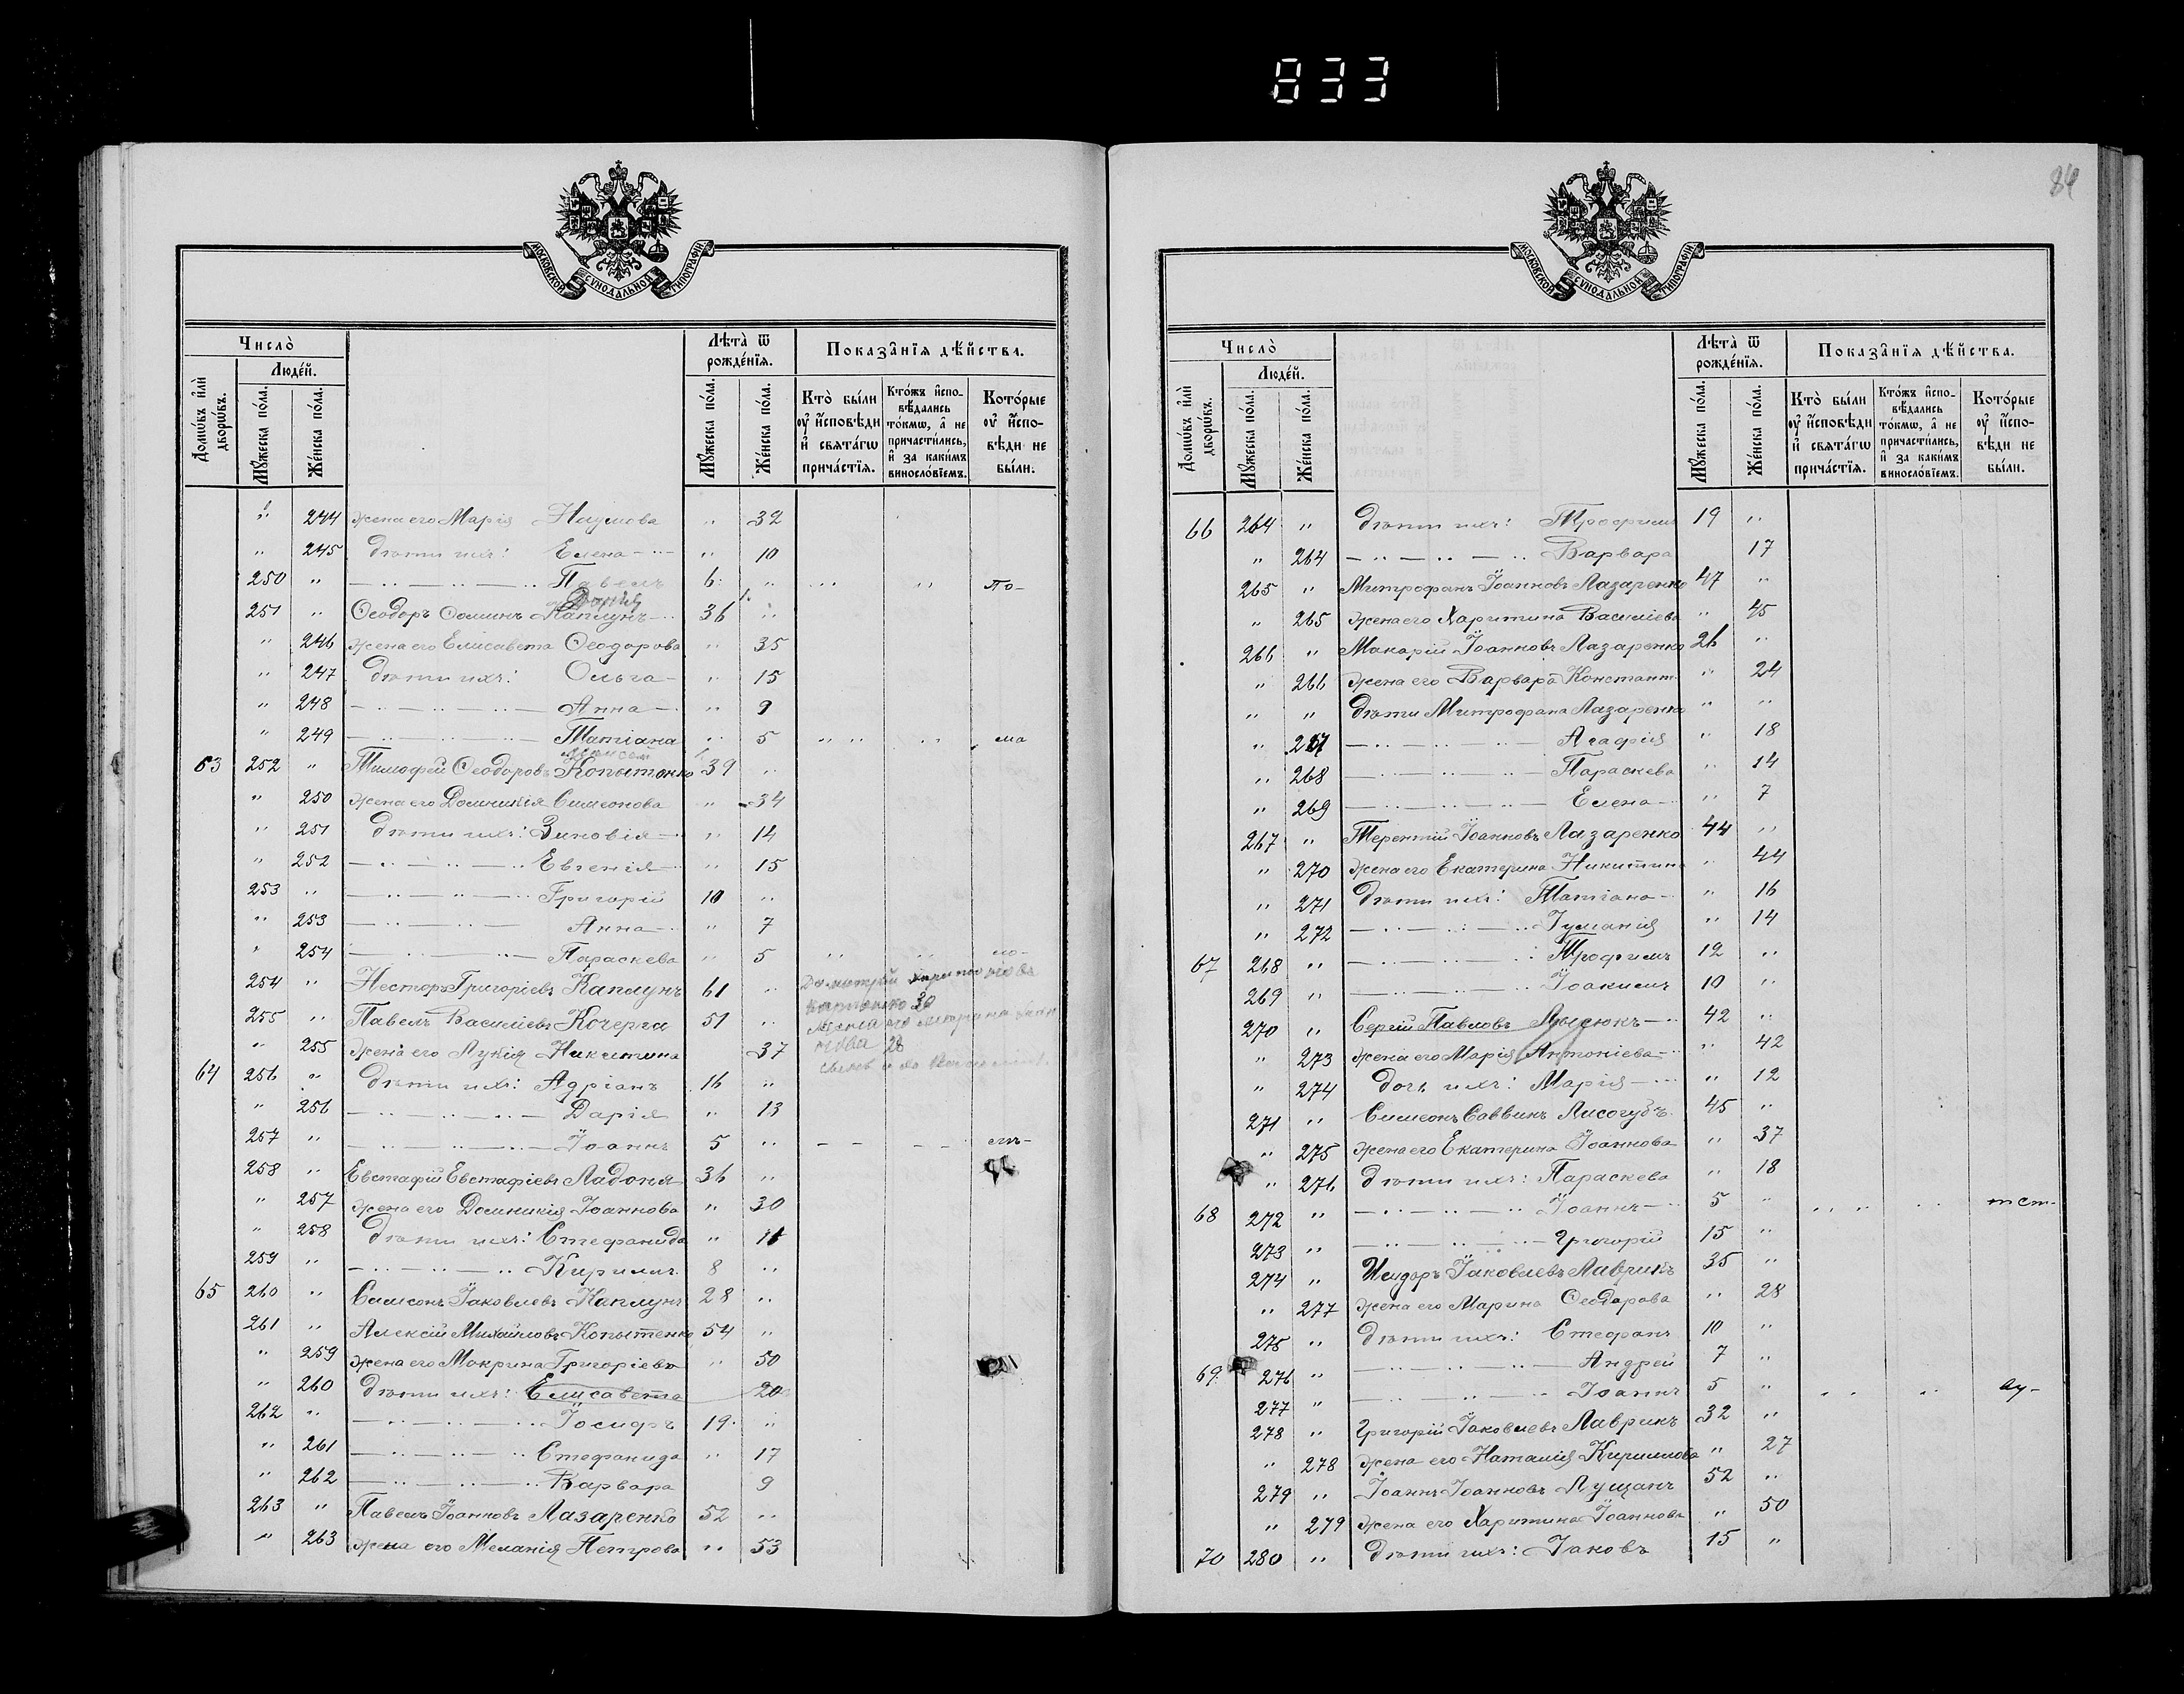 833
84
МОСКОВСКОЙ СѴНОДАЛЬНОЙ ТИПОГРАФІИ
Число̀
Домѡвъ и҆лѝ дворѡвъ.
Люде́й.
Мꙋ́жеска по́ла.
Же́нска по́ла.
Лѣта̀ ѿ рожде́нїѧ.
Мꙋ́жеска по́ла.
Же́нска по́ла.
Показа̑нїѧ дѣ́йства.
Кто̀ бы́ли ᲂу҆ и҆́сповѣди и҆ свѧта́гѡ прича́стїѧ.
Кто́жъ и҆спо-вѣ́дались то́кмѡ, а҆ не причасти́лись, и҆ за каки́мъ винослόвїемъ.
Кото́рые ᲂу҆ и҆́спо-вѣди не бы́ли.
" 244 жена его Марія Наумова " 32
" 245 дѣти ихъ: Елена " 10
250 " Павелъ 6 " " " по-
251 " Ѳеодоръ Ѳоминъ Каплунъ 36 "
" 246 жена его Елисавета Ѳеодорова " 35
" 247 дѣти ихъ: Ольга " 15
" 248 Анна " 9
" 249 Татіана " 5 " " " ма
63 252 " Тимофей Ѳеодоровъ Копытенко 39 "
" 250 жена его Домникія Симеонова " 34
" 251 дѣти ихъ: Зиновія " 14
" 252 Евгенія " 15
253 " Григорій 10 "
" 253 Анна " 7
" 254 Параскева " 5 " "
254 " Несторъ Григоріевъ Каплунъ 61 "
255 " Павелъ Василіевъ Кочерга 51 "
" 255 жена его Лукія Никитина 37
64 256 " дѣти ихъ: Адріанъ 16 "
" 256 Дарія " 13
257 " Іоаннъ 5 "
258 " Евстафій Евстафіевъ Ладоня 36 "
" 257 жена его Домникія Іоаннова " 30
" 258 дѣти ихъ: Стефанида " 11
259 " Кириллъ 8 "
65 260 " Симеонъ Іаковлевъ Каплунъ 28 "
261 " Алексій Михайловъ Копытенко 54 "
" 259 жена его Макрина Григоріева " 50
" 260 дѣти ихъ: Елисавета 20
262 " Іосифъ 19 "
" 261 Стефанида " 17
" 262 Варвара 9
263 " Павелъ Іоанновъ Лазаренко 52 "
" 263 Жена его Меланія Петрова " 53
МОСКОВСКОЙ СѴНОДАЛЬНОЙ ТИПОГРАФІИ
Число̀
Домѡвъ и҆лѝ дворѡвъ.
Люде́й.
Мꙋ́жеска по́ла.
Же́нска по́ла.
Лѣта̀ ѿ рожде́нїѧ.
Мꙋ́жеска по́ла.
Же́нска по́ла.
Показа̑нїѧ дѣ́йства.
Кто̀ бы́ли ᲂу҆ и҆́сповѣди и҆ свѧта́гѡ прича́стїѧ.
Кто́жъ и҆спо-вѣ́дались то́кмѡ, а҆ не причасти́лись, и҆ за каки́мъ винослόвїемъ.
Кото́рые ᲂу҆ и҆́спо-вѣди не бы́ли.
66 264 " дѣти ихъ: Трофимъ 19 "
" 264 Варвара 17
265 " Митрофанъ Іоанновъ Лазаренко 47 "
" 265 жена его Харитина Василіева " 45
266 " Макарій Іоанновъ Лазаренко 26 "
" 266 жена его Варвара Констант. " 24
" " дѣти Митрофана Лазаренка " "
" 267 Агафія " 18
" 268 Параскева " 14
" 269 Елена " 7
267 " Терентій Іоанновъ Лазаренко 44 "
" 270 жена его Екатерина Никитина " 44
" 271 дѣти ихъ: Татіана " 16
" 272 Іуліанія " 14
67 268 " Трофимъ 12 "
269 " Іоакимъ 10 "
270 " Сергій Павловъ Лысюкъ 42 "
" 273 жена его Марія Антоніева " 42
" 274 дочь ихъ: Марія " 12
271 " Симеонъ Саввинъ Лисогубъ 45 "
" 275 жена его Екатерина Іоаннова " 37
" 276 дѣти ихъ: Параскева " 18
68 272 " Іоаннъ 5 " " " " тст-
273 " Григорій 15 "
274 " Исидоръ Іаковлевъ Лаврикъ 35 "
" 277 жена его Марина Ѳеодорова " 28
275 " дѣти ихъ: Стефанъ 10 "
69 276 " Андрей 7 "
277 " Іоаннъ 5 " " "
278 " Григорій Іаковлевъ Лаврикъ 32 "
" 278 жена его Наталія Кириллова " 27
279 " Іоаннъ Іоанновъ Лущанъ 52 "
" 279 жена его Харитина Іоаннова " 50
70 280 " дѣти ихъ: Іаковъ 15 "